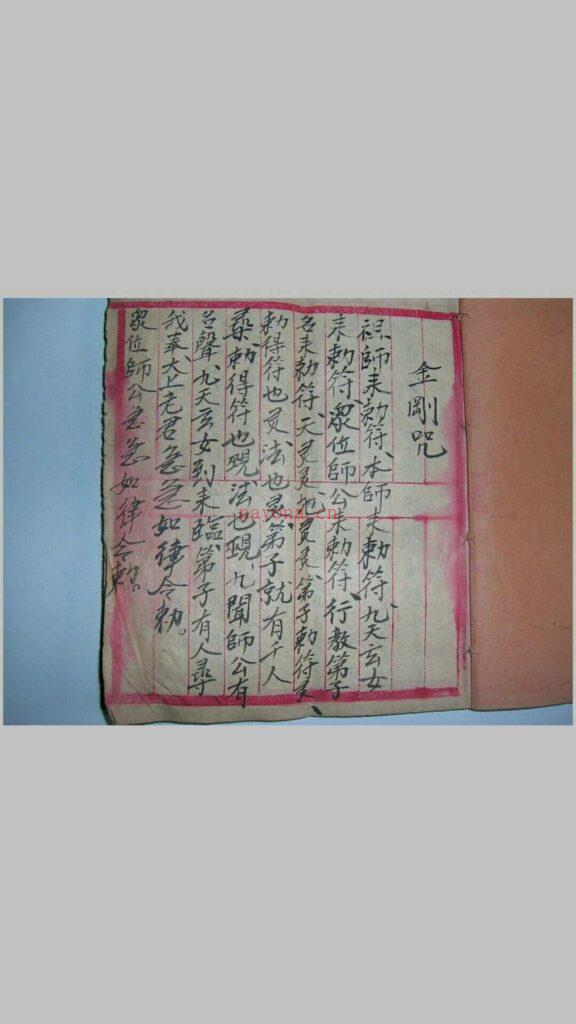 金剛咒
祖師来勅符、本師来勅符、九天玄女
来勅符、眾位師公来勅符、行教弟子
名来勅符、天灵灵地灵灵、弟子勅符灵、
勅得符也灵法也灵、弟子就有千人
尋、勅得符也現法也現、九聞師公有
聲、九天玄女到来臨、弟子有人尋、
我奉太上老君急急如律令勅。
眾位師公急急如律令勅。
nayona.cn